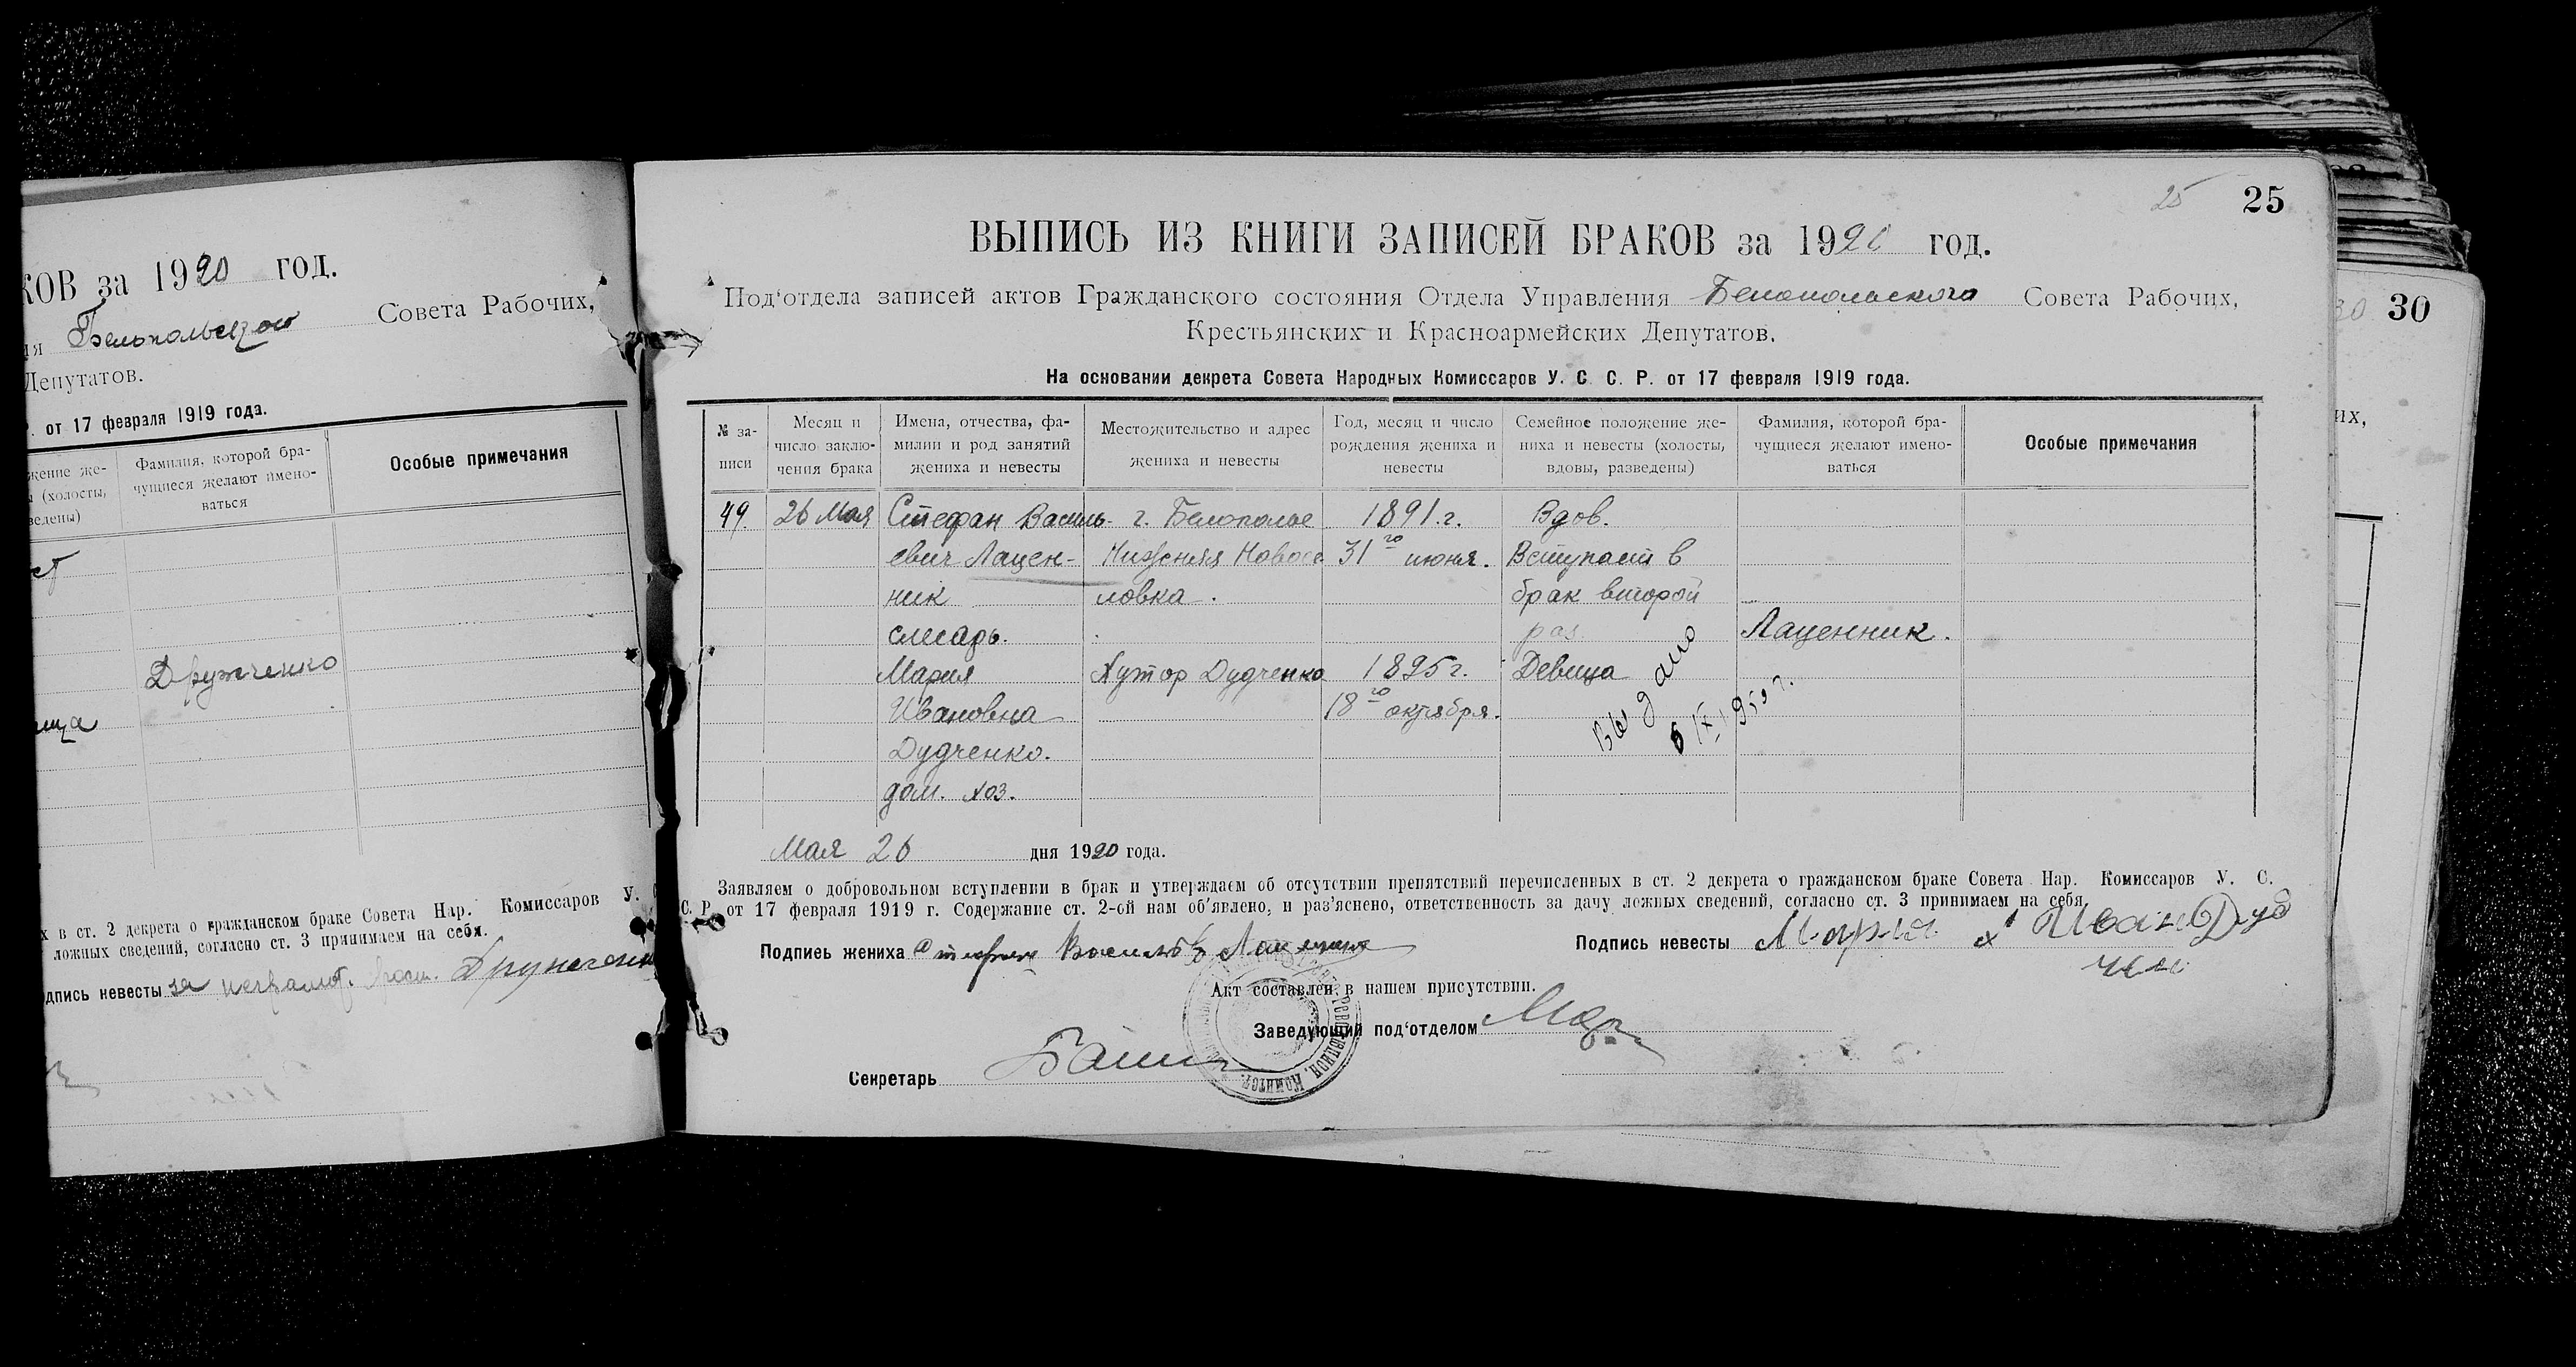 КОВ за 1920 год.
Совета Рабочих,
Депутатов.
от 17 февраля 1919 года.
жение же-
(холосты,
ведены)
Фамилия, которой бра-
чущиеся желают имено-
ваться
Особые примечания
Дружченко
х в ст. 2 декрета о гражданском браке Совета Нар. Комиссаров У.
ложных сведений, согласно ст. 3 принимаем на себя.
дпись невесты за
25 25
ВЫПИСЬ ИЗ КНИГИ ЗАПИСЕЙ БРАКОВ за 1920 год.
Под'отдела записей актов Гражданского состояния Отдела Управления Белопольского Совета Рабочих,
Крестьянских и Красноармейских Депутатов.
На основании декрета Совета Народных Комиссаров У. С. С. Р. от 17 февраля 1919 года.
№ за-
писи
Месяц и
число заклю-
чения брака
Имена, отчества, фа-
милии и род занятий
жениха и невесты
Местожительство и адрес
жениха и невесты
Год, месяц и число
рождения жениха и
невесты
Семейное положение же-
ниха и невесты (холосты,
вдовы, разведены)
Фамилия, которой бра-
чущиеся желают имено-
ваться
Особые примечания
49. 26 Мая Стефан Василь- г. Белополье 1891.г. Вдов.
евич Лацен- Нижняя Новосе 31го июня. Вступает в
ник ловка. брак второй
слесарь. раз. Лаценник.
Мария Хутор Дудченко 1895г. Девица
Ивановна 18го октября.
Дудченко.
дом. хоз.
Выдано
6 IX 1959 г.
Мая 26 дня 1920 года.
Заявляем о добровольном вступлении в брак и утверждаем об отсутствии препятствий перечисленных в ст. 2 декрета о гражданском браке Совета Нар. Комиссаров У. С.
С. Р. от 17 февраля 1919 г. Содержание ст. 2-ой нам об'явлено, и раз'яснено, ответственность за дачу ложных сведений, согласно ст. 3 принимаем на себя
Подпись жениха
Подпись невесты Мария
Акт составлен в нашем присутствии.
Заведующий под'отделом
Секретарь
30 30
их,